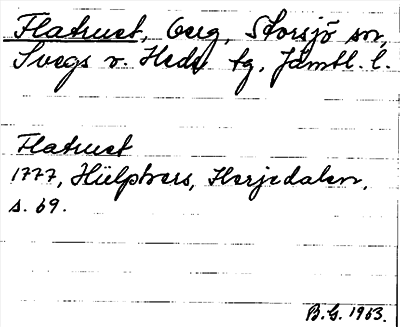 Flatruet, berg, Storsjö sn,
Svegs o. Hede tg, Jämtl. l.
Flatruet
1777, Hülphers, Herjedalen,
s. 69.
B.G. 1963.